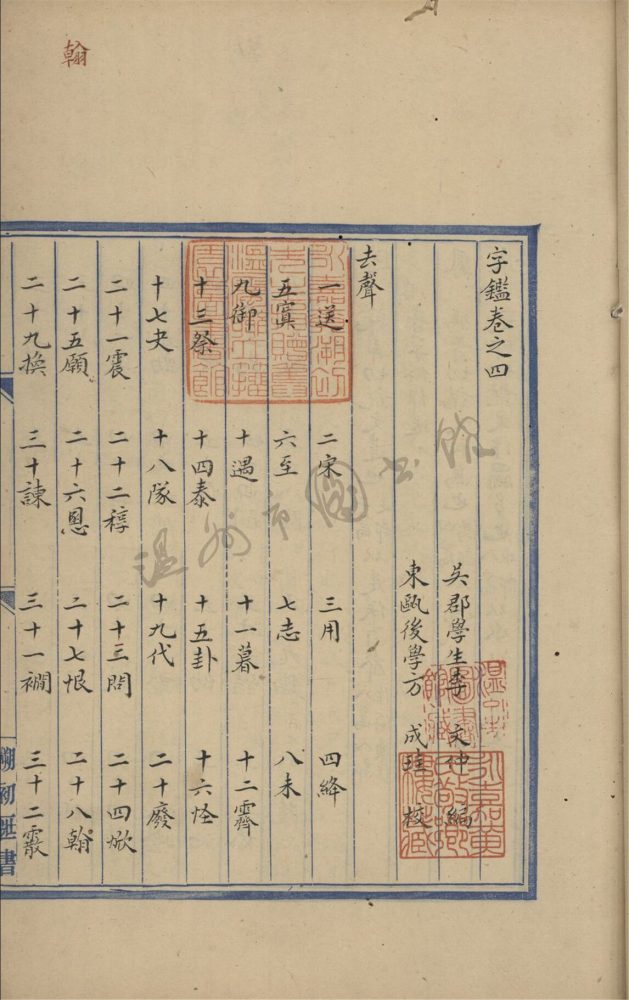 翰
字鑑卷之四
吳郡學生李 文仲 編
東甌後學方 成珪 校
去聲
一送 二宋 三用 四絳
五寘 六至 七志 八未
九御 十遇 十一暮 十二霽
十三祭 十四泰 十五卦 十六怪
十七夬 十八隊 十九代 二十廢
二十一震 二十二稕 二十三問 二十四焮
二十五願 二十六慁 二十七恨 二十八翰
二十九換 三十諫 三十一襉 三十二霰
溫州市圖書館